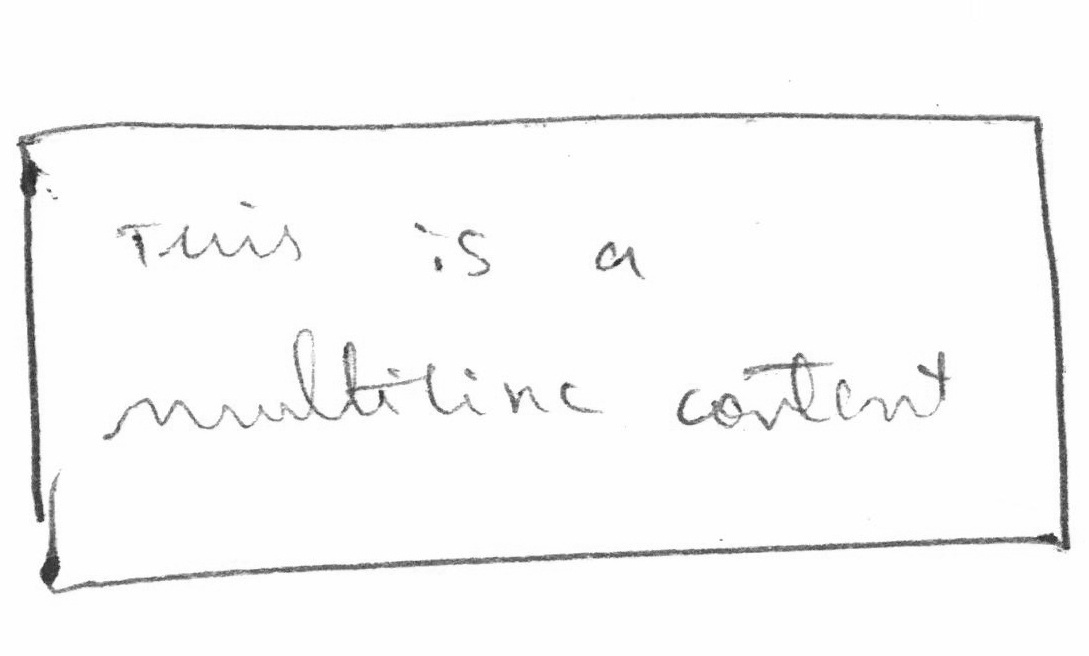 This is a
multiline content